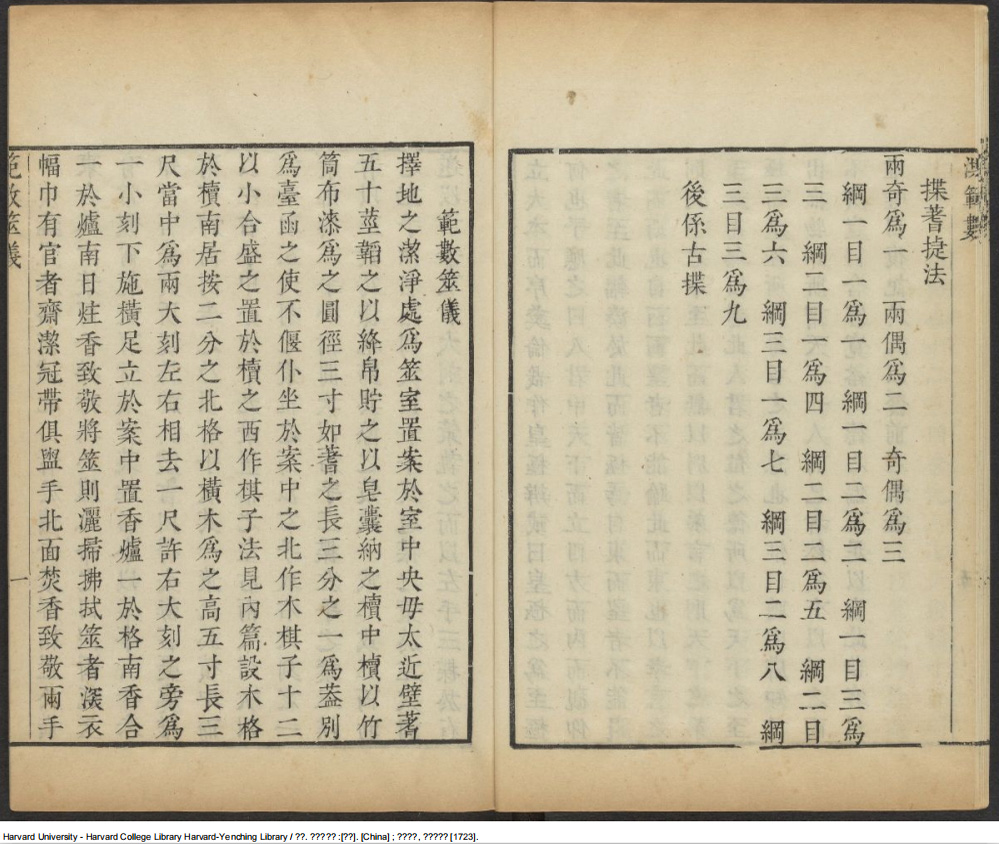 洪範數
揲蓍捷法
兩奇爲一 兩偶爲二 奇偶爲三
綱一目一爲一 綱一目二爲二 綱一目三爲
三 綱二目一爲四 綱二目二爲五 綱二目
三爲六 綱三目一爲七 綱三目二爲八 綱
三目三爲九
後係古揲
範數筮儀
擇地之潔淨處爲筮室置案於室中央毋太近壁蓍
五十莖韜之以絳帛貯之以皂囊納之櫝中櫝以竹
筒布漆爲之圓徑三寸如蓍之長三分之一爲葢別
爲臺函之使不偃仆坐於案中之北作木棋子十二
以小合盛之置於櫝之西作棋子法見內篇設木格
於櫝南居按二分之北格以橫木爲之高五寸長三
尺當中爲兩大刻左右相去一尺許右大刻之旁爲
一小刻下施橫足立於案中置香爐一於格南香合
一於爐南日炷香致敬將筮則灑掃拂拭筮者深衣
幅巾有官者齋潔冠帶俱盥手北面焚香致敬兩手
範數筮儀
一
Harvard University - Harvard College Library Harvard-Yenching Library / ??. ????? :[??]. [China] ; ????, ????? [1723].